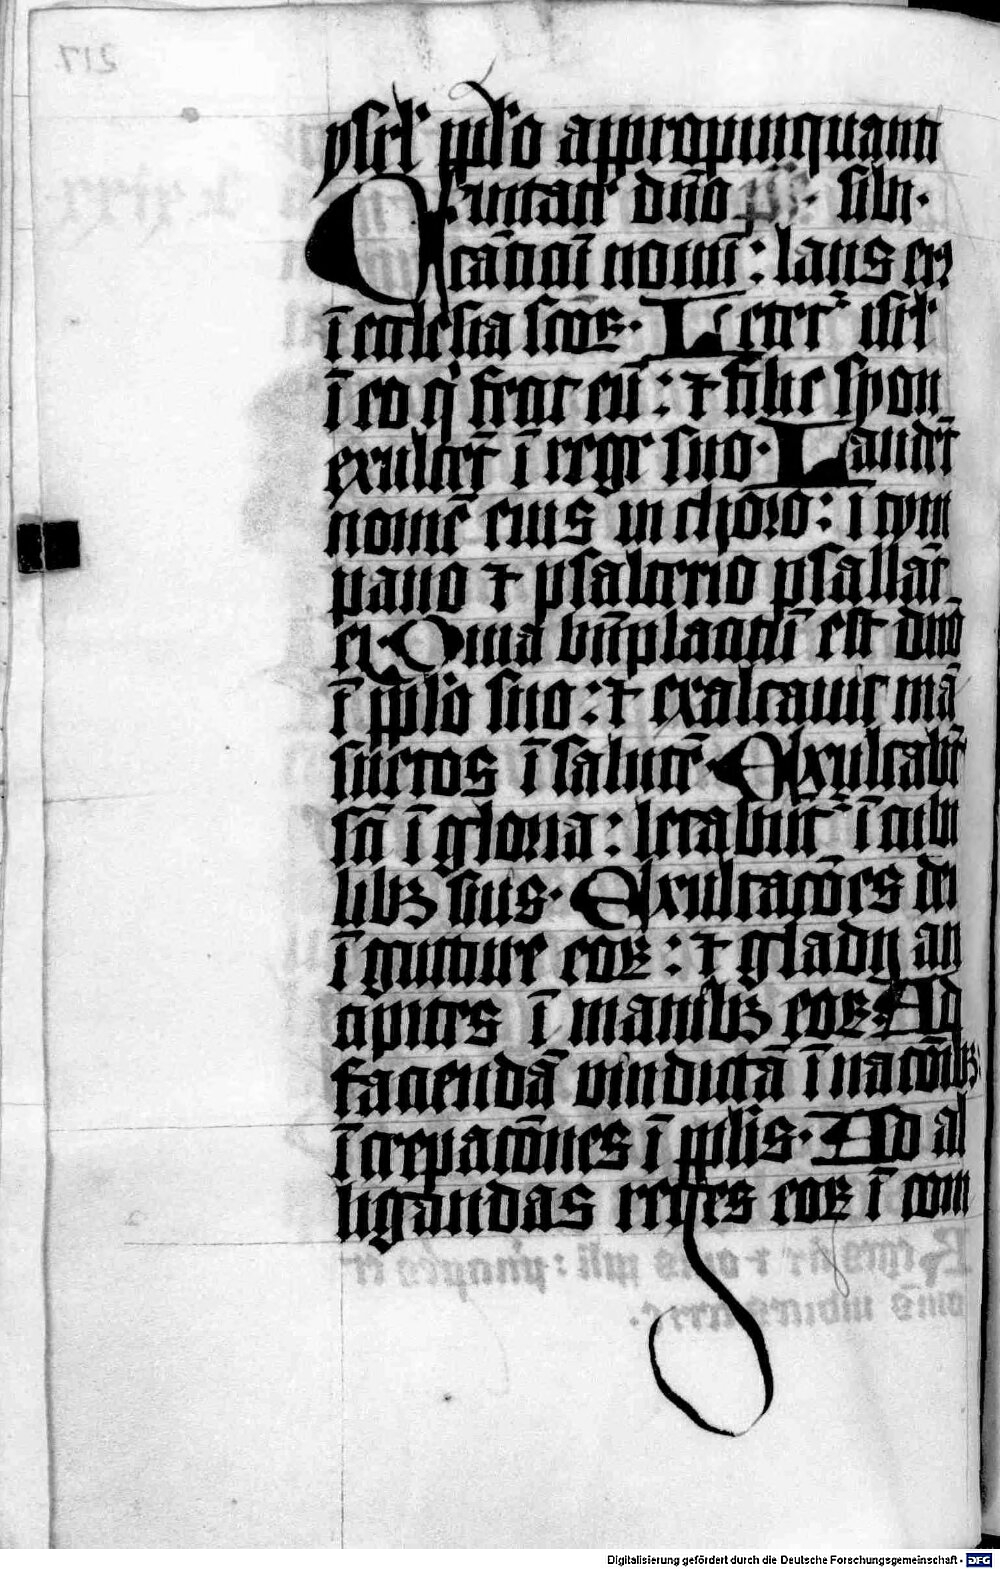 ysrl' ppl'o appropinquanti
Cantate dño ps̃. sibi.
cãticũ nouũ: laus eiꝰ
ĩ ecclesia scõꝝ. Letet᷑ isrl'
ĩ eo q̇ fecit eũ: ⁊ filie syon
exultẽt ĩ rege suo. Laudẽt
nomẽ eius in choro: ĩ tym
pano ⁊ psalterio psallãt
ei Quia bñplacitũ est dño
ĩ ppl'o suo: ⁊ exaltauit mã
suetos ĩ salutẽ. Exultabũt
sc̃i ĩ gloria: letabũt᷑ ĩ cubi
libꝫ suis. Exultacões dei
ĩ gutture eoꝝ: ⁊ gladij an
cipites ĩ manibꝫ eoꝝ. Ad
faciendã vindictã ĩ nacõibꝫ:
ĩcrepacõnes ĩ pplis. Ad al
ligandas reges eoꝝ ĩ com
Digitalisierung gefördert durch die Deutsche Forschungsgemeinschaft - DFG